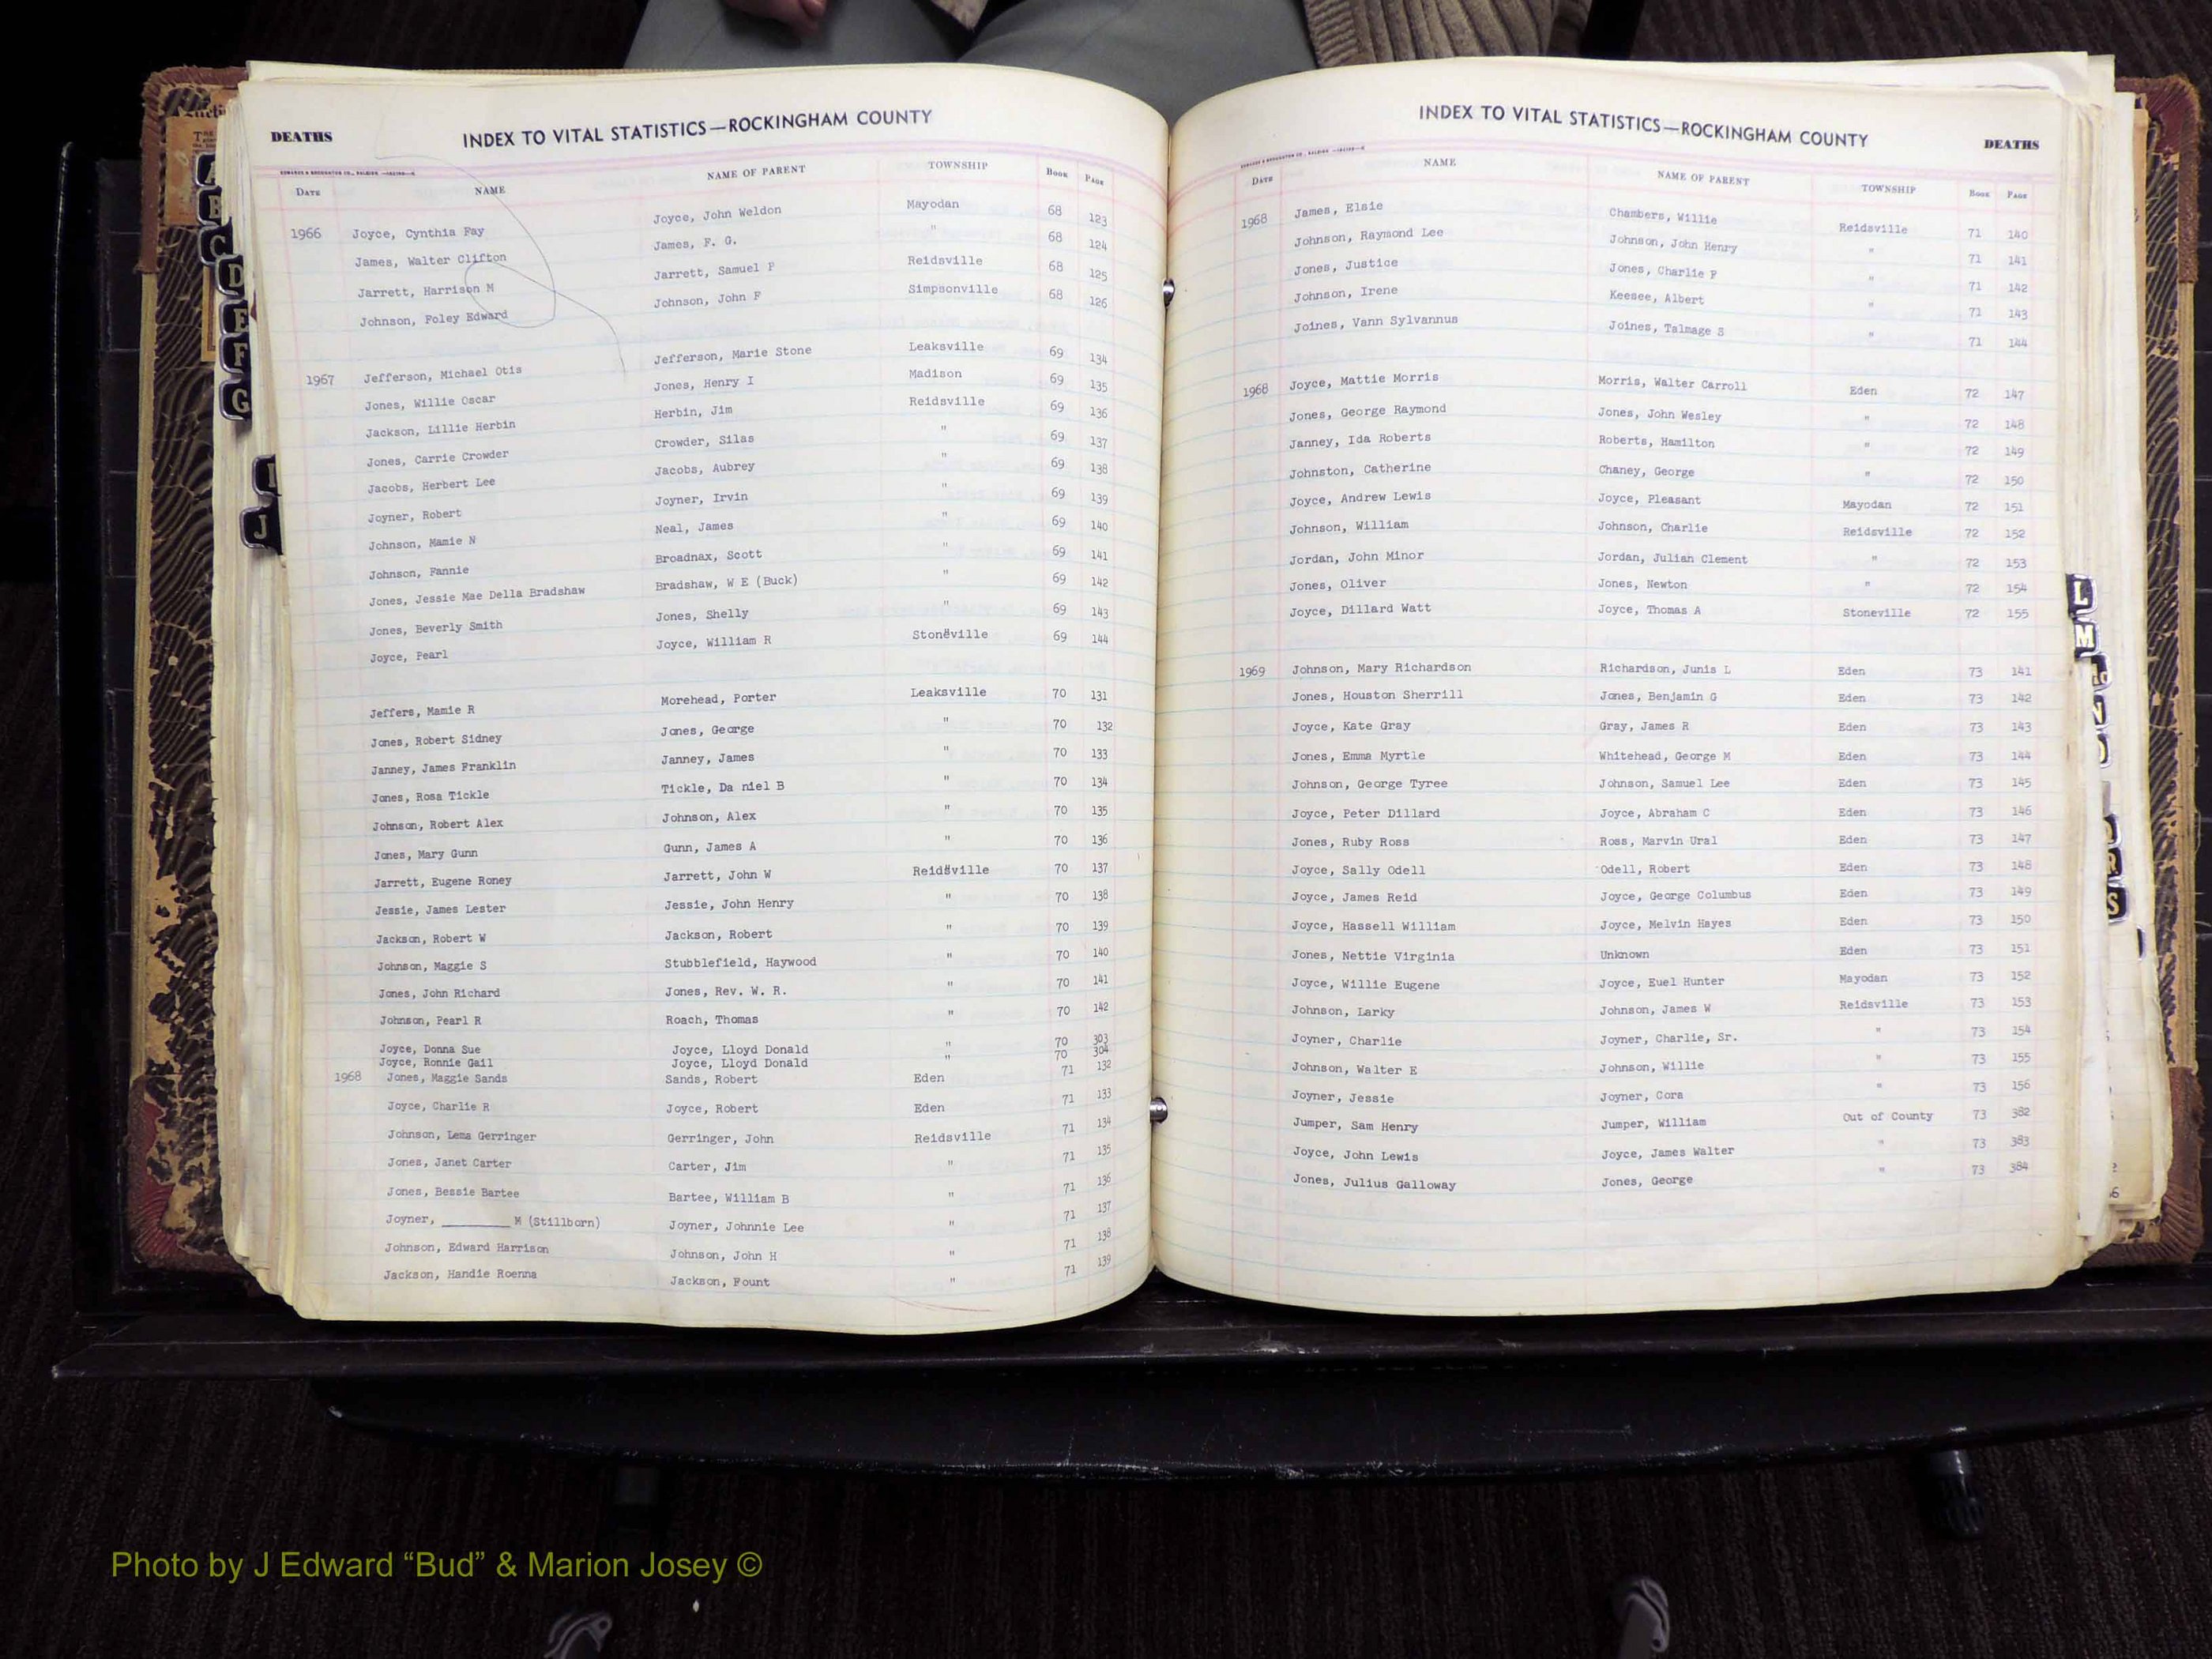 DEATHS
INDEX TO VITAL STATISTICS—ROCKINGHAM COUNTY
DATE NAME NAME OF PARENT TOWNSHIP BOOK PAGE
1966 Joyce, Cynthia Fay Joyce, John Weldon Mayodan 68 123
James, Walter Clifton James, F. G. " 68 124
Jarrett, Harrison M Jarrett, Samuel P Reidsville 68 125
Johnson, Foley Edward Johnson, John F Simpsonville 68 126
1967 Jefferson, Michael Otis Jefferson, Marie Stone Leaksville 69 134
Jones, Willie Oscar Jones, Henry I Madison 69 135
Jackson, Lillie Herbin Herbin, Jim Reidsville 69 136
Jones, Carrie Crowder Crowder, Silas " 69 137
Jacobs, Herbert Lee Jacobs, Aubrey " 69 138
Joyner, Robert Joyner, Irvin " 69 139
Johnson, Mamie N Neal, James " 69 140
Johnson, Fannie Broadnax, Scott " 69 141
Jones, Jessie Mae Della Bradshaw Bradshaw, W E (Buck) " 69 142
Jones, Beverly Smith Jones, Shelly " 69 143
Joyce, Pearl Joyce, William R Stoneville 69 144
Jeffers, Mamie R Morehead, Porter Leaksville 70 131
Jones, Robert Sidney Jones, George " 70 132
Janney, James Franklin Janney, James " 70 133
Jones, Rosa Tickle Tickle, Da niel B " 70 134
Johnson, Robert Alex Johnson, Alex " 70 135
Jones, Mary Gunn Gunn, James A " 70 136
Jarrett, Eugene Roney Jarrett, John W Reidsville 70 137
Jessie, James Lester Jessie, John Henry " 70 138
Jackson, Robert W Jackson, Robert " 70 139
Johnson, Maggie S Stubblefield, Haywood " 70 140
Jones, John Richard Jones, Rev. W. R. " 70 141
Johnson, Pearl R Roach, Thomas " 70 142
Joyce, Donna Sue Joyce, Lloyd Donald " 70 303
Joyce, Ronnie Gail Joyce, Lloyd Donald " 70 304
1968 Jones, Maggie Sands Sands, Robert Eden 71 132
Joyce, Charlie R Joyce, Robert Eden 71 133
Johnson, Lema Gerringer Gerringer, John Reidsville 71 134
Jones, Janet Carter Carter, Jim " 71 135
Jones, Bessie Bartee Bartee, William B " 71 136
Joyner, _________ M (Stillborn) Joyner, Johnnie Lee " 71 137
Johnson, Edward Harrison Johnson, John H " 71 138
Jackson, Handie Roenna Jackson, Fount " 71 139
INDEX TO VITAL STATISTICS—ROCKINGHAM COUNTY
DEATHS
DATE NAME NAME OF PARENT TOWNSHIP BOOK PAGE
1968 James, Elsie Chambers, Willie Reidsville 71 140
Johnson, Raymond Lee Johnson, John Henry " 71 141
Jones, Justice Jones, Charlie F " 71 142
Johnson, Irene Keesee, Albert " 71 143
Joines, Vann Sylvannus Joines, Talmage S " 71 144
1968 Joyce, Mattie Morris Morris, Walter Carroll Eden 72 147
Jones, George Raymond Jones, John Wesley " 72 148
Janney, Ida Roberts Roberts, Hamilton " 72 149
Johnston, Catherine Chaney, George " 72 150
Joyce, Andrew Lewis Joyce, Pleasant Mayodan 72 151
Johnson, William Johnson, Charlie Reidsville 72 152
Jordan, John Minor Jordan, Julian Clement " 72 153
Jones, Oliver Jones, Newton " 72 154
Joyce, Dillard Watt Joyce, Thomas A Stoneville 72 155
1969 Johnson, Mary Richardson Richardson, Junis L Eden 73 141
Jones, Houston Sherrill Jones, Benjamin G Eden 73 142
Joyce, Kate Gray Gray, James R Eden 73 143
Jones, Emma Myrtle Whitehead, George M Eden 73 144
Johnson, George Tyree Johnson, Samuel Lee Eden 73 145
Joyce, Peter Dillard Joyce, Abraham C Eden 73 146
Jones, Ruby Ross Ross, Marvin Ural Eden 73 147
Joyce, Sally Odell Odell, Robert Eden 73 148
Joyce, James Reid Joyce, George Columbus Eden 73 149
Joyce, Hassell William Joyce, Melvin Hayes Eden 73 150
Jones, Nettie Virginia Unknown Eden 73 151
Joyce, Willie Eugene Joyce, Euel Hunter Mayodan 73 152
Johnson, Larky Johnson, James W Reidsville 73 153
Joyner, Charlie Joyner, Charlie, Sr. " 73 154
Johnson, Walter E Johnson, Willie " 73 155
Joyner, Jessie Joyner, Cora " 73 156
Jumper, Sam Henry Jumper, William Out of County 73 382
Joyce, John Lewis Joyce, James Walter " 73 383
Jones, Julius Galloway Jones, George " 73 384
A
B
C
D
E
F
G
J
L
M
R
S
Photo by J Edward “Bud” & Marion Josey ©